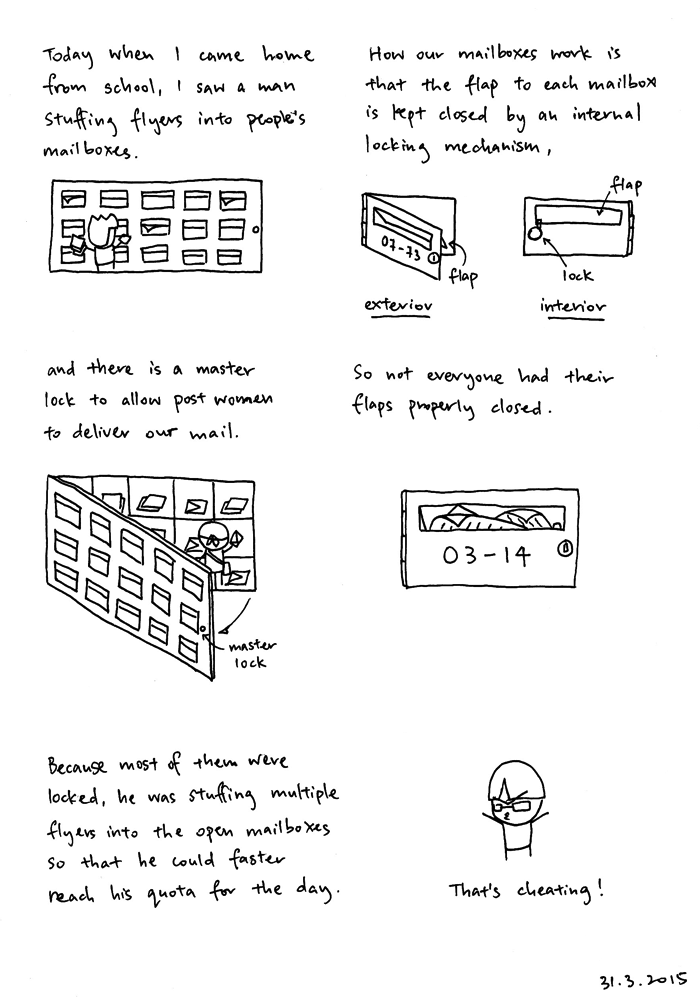 Today when I came home
from school, I saw a man
stuffing flyers into people's
mailboxes.
How our mailboxes work is
that the flap to each mailbox
is kept closed by an internal
locking mechanism,
07-73
flap
exterior
flap
lock
interior
and there is a master
lock to allow post women
to deliver our mail.
master
lock
So not everyone had their
flaps properly closed.
03-14
Because most of them were
locked, he was stuffing multiple
flyers into the open mailboxes
so that he could faster
reach his quota for the day.
That's cheating!
31.3.2015